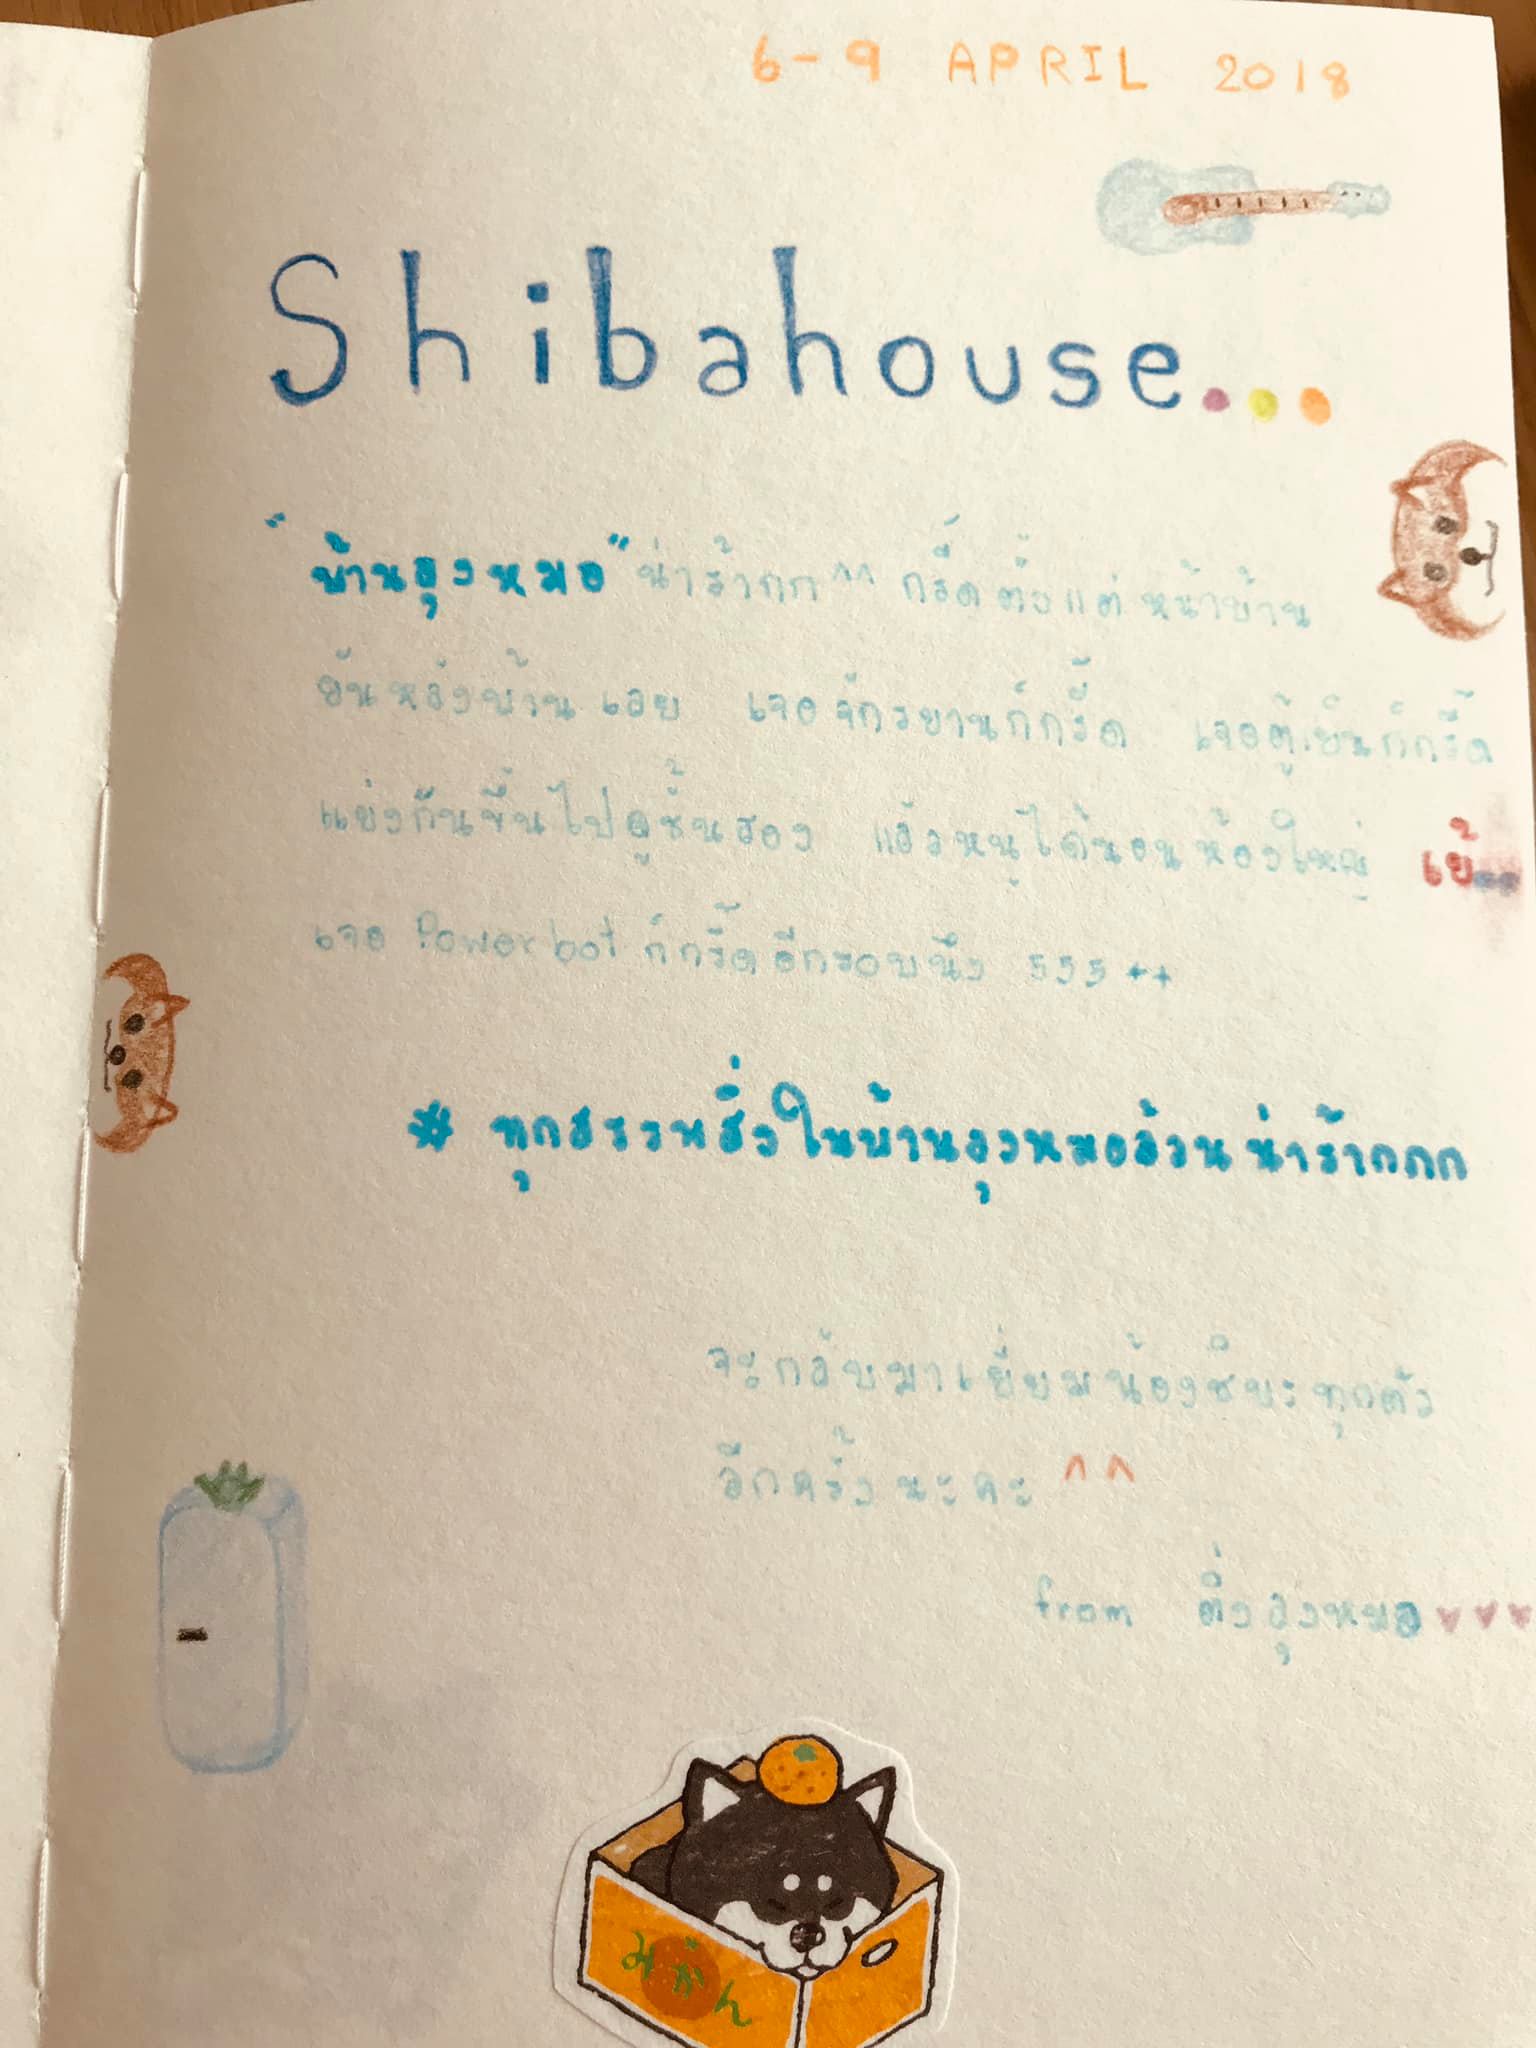 6-9 APRIL 2018
Shibahouse...
"บ้านลุงหมอ" น่าร้ากก ^^ กรี๊ดตั้งแต่หน้าบ้าน
ยันหลังบ้านเลย เจอจักรยานก็กรี๊ด เจอตู้เย็นก็กรี๊ด
แย่งกันขึ้นไปดูชั้นสอง แล้วหนูได้นอนห้องใหญ่ เย้...
เจอ Powerbot ก็กรี๊ดอีกรอบนึง 555++
* ทุกสรรพสิ่งในบ้านลุงหมอล้วนน่าร้ากกก
จะกลับมาเยี่ยมน้องชิบะทุกตัว
อีกครั้งนะคะ ^^
from ติ่งลุงหมอ ♥♥♥